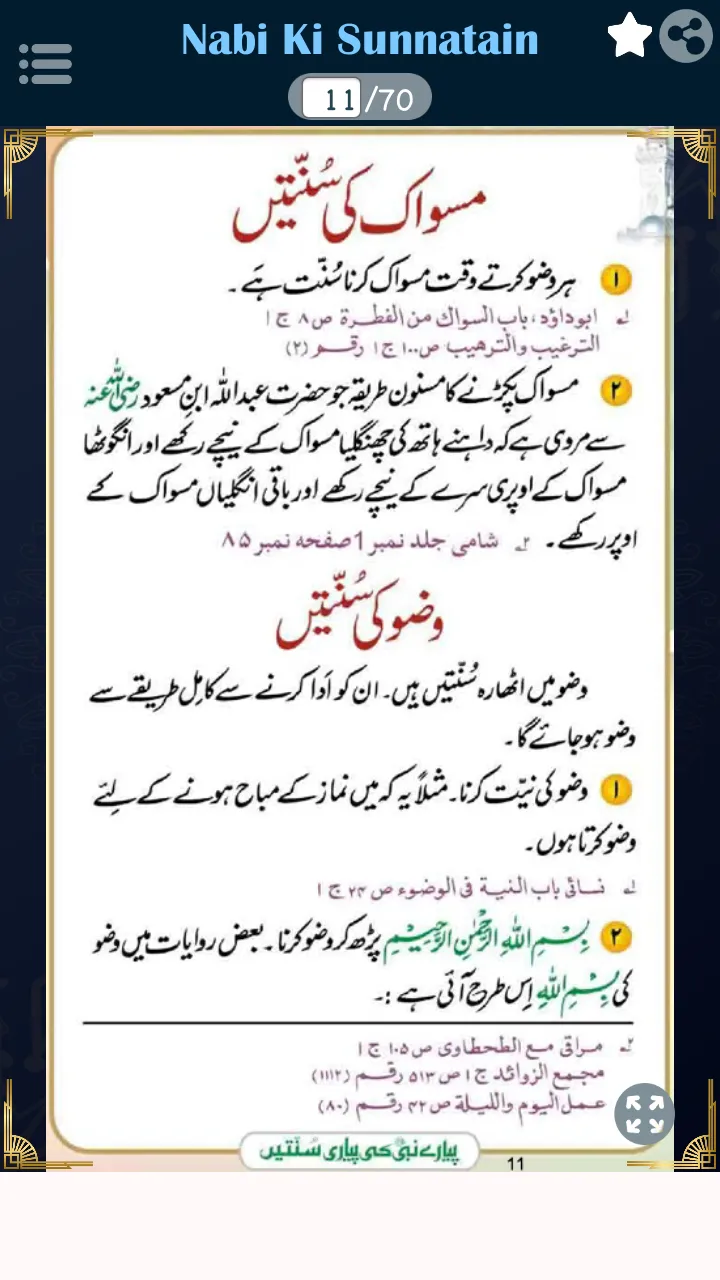 Nabi Ki Sunnatain
11/70
مسواک کی سُنّتیں
۱ ہر وضو کرتے وقت مسواک کرنا سُنّت ہَے ۔
لے ابوداؤد، باب السواك من الفطرة ص ۸ ج ۱
الترغیب والترهیب ص۱۰۰ ج ۱ رقم (۲)
۲ مسواک پکڑنے کا مسنون طریقہ جو حضرت عبداللہ ابنِ مسعود رضی اللہ عنہ
سے مروی ہے کہ داہنے ہاتھ کی چھنگلیا مسواک کے نیچے رکھے اور انگوٹھا
مسواک کے اوپری سرے کے نیچے رکھے اور باقی انگلیاں مسواک کے
اوپر رکھے۔ ۲ شامی جلد نمبر 1 صفحہ نمبر ۸۵
وضو کی سُنّتیں
وضو میں اٹھارہ سُنّتیں ہیں۔ ان کو اَدا کرنے سے کامِل طریقے سے
وضو ہو جائے گا۔
۱ وضو کی نیّت کرنا۔ مثلاً یہ کہ میں نماز کے مباح ہونے کے لِئے
وضو کرتا ہوں۔
لے نسائی باب النیة فی الوضوء ص ۲۴ ج ۱
۲ بِسْمِ اللهِ الرَّحْمٰنِ الرَّحِيْمِ پڑھ کر وضو کرنا۔ بعض روایات میں وضو
کی بِسْمِ اللهِ اِس طرح آئی ہے :۔
۲ مراقی مع الطحطاوی ص ۱۰۵ ج ۱
مجمع الزوائد ج ۱ ص ۵۱۳ رقم (۱۱۱۲)
عمل الیوم واللیلة ص ۴۲ رقم (۸۰)
پیارے نبی ﷺ کی پیاری سُنّتیں
11